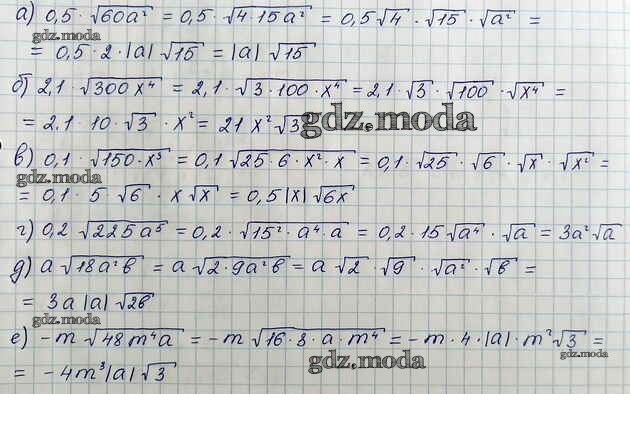 а) 0,5·√60a² = 0,5·√4·15a² = 0,5√4·√15·√a² =
gdz.moda
= 0,5·2·|a|√15 = |a|√15
б) 2,1·√300x⁴ = 2,1·√3·100·x⁴ = 2,1·√3·√100·√x⁴ =
= 2,1·10·√3·x² = 21x²√3
gdz.moda
в) 0,1·√150·x³ = 0,1√25·6·x²·x = 0,1·√25·√6·√x·√x² =
gdz.moda
= 0,1·5·√6·x√x = 0,5|x|√6x
г) 0,2√225a⁵ = 0,2·√15²·a⁴·a = 0,2·15√a⁴·√a = 3a²√a
д) a√18a²b = a√2·9a²b = a√2·√9·√a²·√b =
= 3a|a|√2b
gdz.moda
е) -m√48m⁴a = -m√16·3·a·m⁴ = -m·4·|a|·m²√3 =
gdz.moda
gdz.moda
= -4m³|a|√3